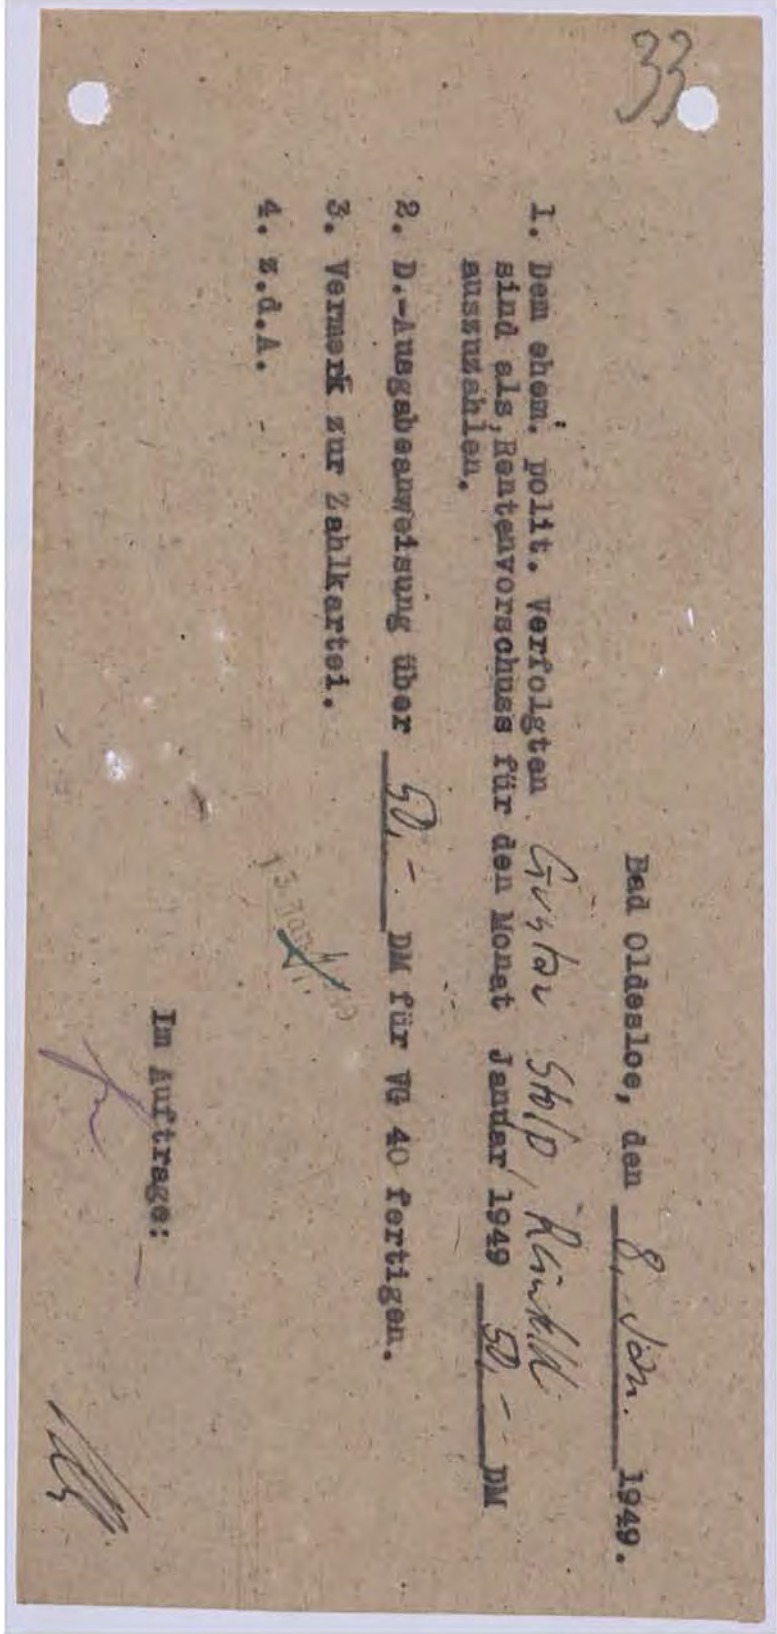 33
Bad Oldesloe, den 8. Jan. 1949.
1. Dem ehem. polit. Verfolgten Gustav Stolp, Reinfeld
sind als Rentenvorschuss für den Monat Januar 1949 50,- DM
auszuzahlen.
2. D.-Ausgabeanweisung über 50,- DM für VG 40 fertigen.
3. Vermerk zur Zahlkartei.
4. z.d.A.
Im Auftrage: